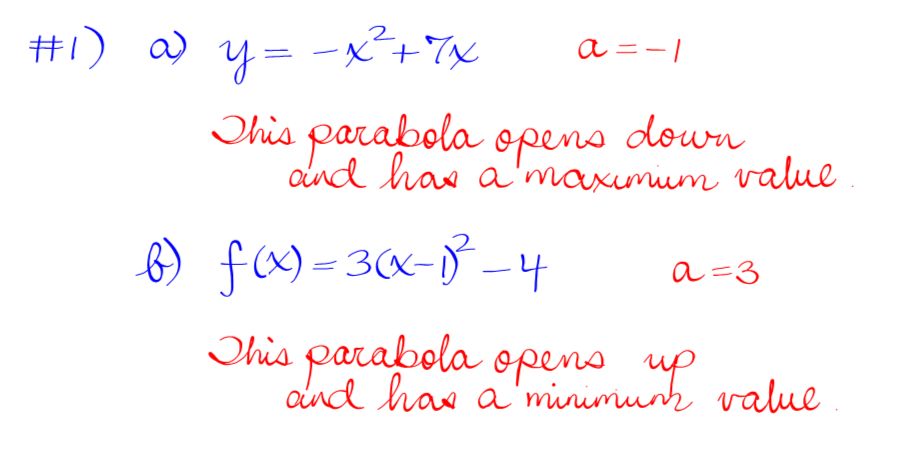 #1) a) y = -x² + 7x a = -1
This parabola opens down
and has a maximum value.
b) f(x) = 3(x-1)² - 4 a = 3
This parabola opens up
and has a minimum value.